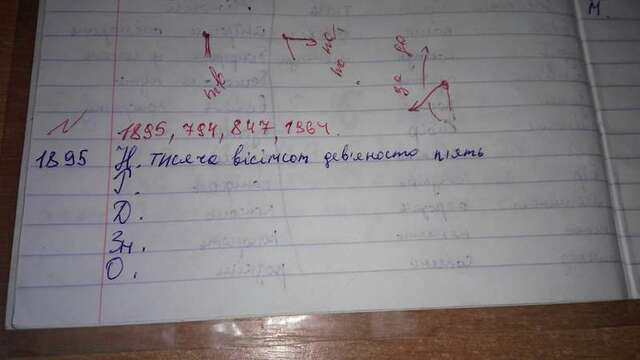 М.
по
по
за до
1895, 794, 847, 1964.
1895 Н. тисяча вісімсот дев'яносто п'ять
Р.
Д.
Зн.
О.